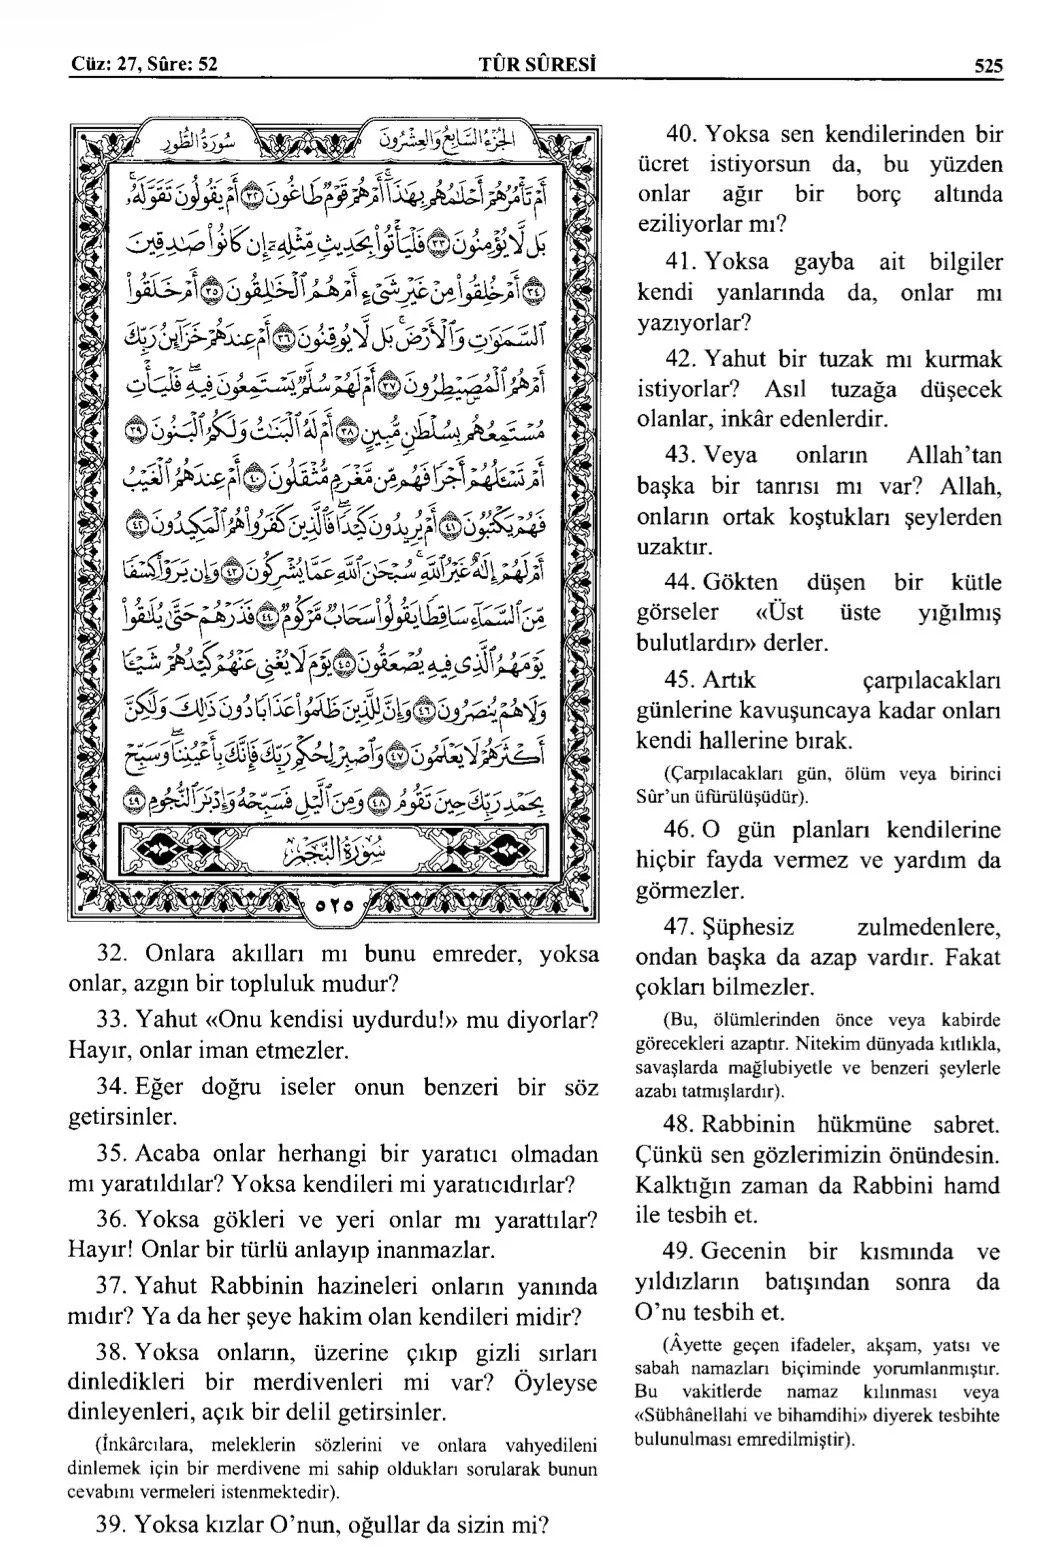 Cüz: 27, Sûre: 52 TÛR SÛRESİ 525
سُورَةُ الطُّورِ الجُزْءُ السَّابِعُ وَالْعِشْرُونَ
أَمْ تَأْمُرُهُمْ أَحْلَٰمُهُم بِهَٰذَآ ۚ أَمْ هُمْ قَوْمٌ طَاغُونَ ﴿٣٢﴾ أَمْ يَقُولُونَ تَقَوَّلَهُۥ ۚ
بَل لَّا يُؤْمِنُونَ ﴿٣٣﴾ فَلْيَأْتُوا۟ بِحَدِيثٍ مِّثْلِهِۦٓ إِن كَانُوا۟ صَٰدِقِينَ
﴿٣٤﴾ أَمْ خُلِقُوا۟ مِنْ غَيْرِ شَىْءٍ أَمْ هُمُ ٱلْخَٰلِقُونَ ﴿٣٥﴾ أَمْ خَلَقُوا۟
ٱلسَّمَٰوَٰتِ وَٱلْأَرْضَ ۚ بَل لَّا يُوقِنُونَ ﴿٣٦﴾ أَمْ عِندَهُمْ خَزَآئِنُ رَبِّكَ
أَمْ هُمُ ٱلْمُصَۣيْطِرُونَ ﴿٣٧﴾ أَمْ لَهُمْ سُلَّمٌ يَسْتَمِعُونَ فِيهِ ۖ فَلْيَأْتِ
مُسْتَمِعُهُم بِسُلْطَٰنٍ مُّبِينٍ ﴿٣٨﴾ أَمْ لَهُ ٱلْبَنَٰتُ وَلَكُمُ ٱلْبَنُونَ ﴿٣٩﴾
أَمْ تَسْـَٔلُهُمْ أَجْرًا فَهُم مِّن مَّغْرَمٍ مُّثْقَلُونَ ﴿٤٠﴾ أَمْ عِندَهُمُ ٱلْغَيْبُ
فَهُمْ يَكْتُبُونَ ﴿٤١﴾ أَمْ يُرِيدُونَ كَيْدًا ۖ فَٱلَّذِينَ كَفَرُوا۟ هُمُ ٱلْمَكِيدُونَ ﴿٤٢﴾
أَمْ لَهُمْ إِلَٰهٌ غَيْرُ ٱللَّهِ ۚ سُبْحَٰنَ ٱللَّهِ عَمَّا يُشْرِكُونَ ﴿٤٣﴾ وَإِن يَرَوْا۟ كِسْفًا
مِّنَ ٱلسَّمَآءِ سَاقِطًا يَقُولُوا۟ سَحَابٌ مَّرْكُومٌ ﴿٤٤﴾ فَذَرْهُمْ حَتَّىٰ يُلَٰقُوا۟
يَوْمَهُمُ ٱلَّذِى فِيهِ يُصْعَقُونَ ﴿٤٥﴾ يَوْمَ لَا يُغْنِى عَنْهُمْ كَيْدُهُمْ شَيْـًٔا
وَلَا هُمْ يُنصَرُونَ ﴿٤٦﴾ وَإِنَّ لِلَّذِينَ ظَلَمُوا۟ عَذَابًا دُونَ ذَٰلِكَ وَلَٰكِنَّ
أَكْثَرَهُمْ لَا يَعْلَمُونَ ﴿٤٧﴾ وَٱصْبِرْ لِحُكْمِ رَبِّكَ فَإِنَّكَ بِأَعْيُنِنَا ۖ وَسَبِّحْ
بِحَمْدِ رَبِّكَ حِينَ تَقُومُ ﴿٤٨﴾ وَمِنَ ٱلَّيْلِ فَسَبِّحْهُ وَإِدْبَٰرَ ٱلنُّجُومِ ﴿٤٩﴾
سُورَةُ النَّجْمِ
٥٢٥
32. Onlara akılları mı bunu emreder, yoksa
onlar, azgın bir topluluk mudur?
33. Yahut «Onu kendisi uydurdu!» mu diyorlar?
Hayır, onlar iman etmezler.
34. Eğer doğru iseler onun benzeri bir söz
getirsinler.
35. Acaba onlar herhangi bir yaratıcı olmadan
mı yaratıldılar? Yoksa kendileri mi yaratıcıdırlar?
36. Yoksa gökleri ve yeri onlar mı yarattılar?
Hayır! Onlar bir türlü anlayıp inanmazlar.
37. Yahut Rabbinin hazineleri onların yanında
mıdır? Ya da her şeye hakim olan kendileri midir?
38. Yoksa onların, üzerine çıkıp gizli sırları
dinledikleri bir merdivenleri mi var? Öyleyse
dinleyenleri, açık bir delil getirsinler.
(İnkârcılara, meleklerin sözlerini ve onlara vahyedileni
dinlemek için bir merdivene mi sahip oldukları sorularak bunun
cevabını vermeleri istenmektedir).
39. Yoksa kızlar O’nun, oğullar da sizin mi?
40. Yoksa sen kendilerinden bir
ücret istiyorsun da, bu yüzden
onlar ağır bir borç altında
eziliyorlar mı?
41. Yoksa gayba ait bilgiler
kendi yanlarında da, onlar mı
yazıyorlar?
42. Yahut bir tuzak mı kurmak
istiyorlar? Asıl tuzağa düşecek
olanlar, inkâr edenlerdir.
43. Veya onların Allah’tan
başka bir tanrısı mı var? Allah,
onların ortak koştukları şeylerden
uzaktır.
44. Gökten düşen bir kütle
görseler «Üst üste yığılmış
bulutlardır» derler.
45. Artık çarpılacakları
günlerine kavuşuncaya kadar onları
kendi hallerine bırak.
(Çarpılacakları gün, ölüm veya birinci
Sûr’un üfürülüşüdür).
46. O gün planları kendilerine
hiçbir fayda vermez ve yardım da
görmezler.
47. Şüphesiz zulmedenlere,
ondan başka da azap vardır. Fakat
çokları bilmezler.
(Bu, ölümlerinden önce veya kabirde
görecekleri azaptır. Nitekim dünyada kıtlıkla,
savaşlarda mağlubiyetle ve benzeri şeylerle
azabı tatmışlardır).
48. Rabbinin hükmüne sabret.
Çünkü sen gözlerimizin önündesin.
Kalktığın zaman da Rabbini hamd
ile tesbih et.
49. Gecenin bir kısmında ve
yıldızların batışından sonra da
O’nu tesbih et.
(Âyette geçen ifadeler, akşam, yatsı ve
sabah namazları biçiminde yorumlanmıştır.
Bu vakitlerde namaz kılınması veya
«Sübhânellahi ve bihamdihi» diyerek tesbihte
bulunulması emredilmiştir).